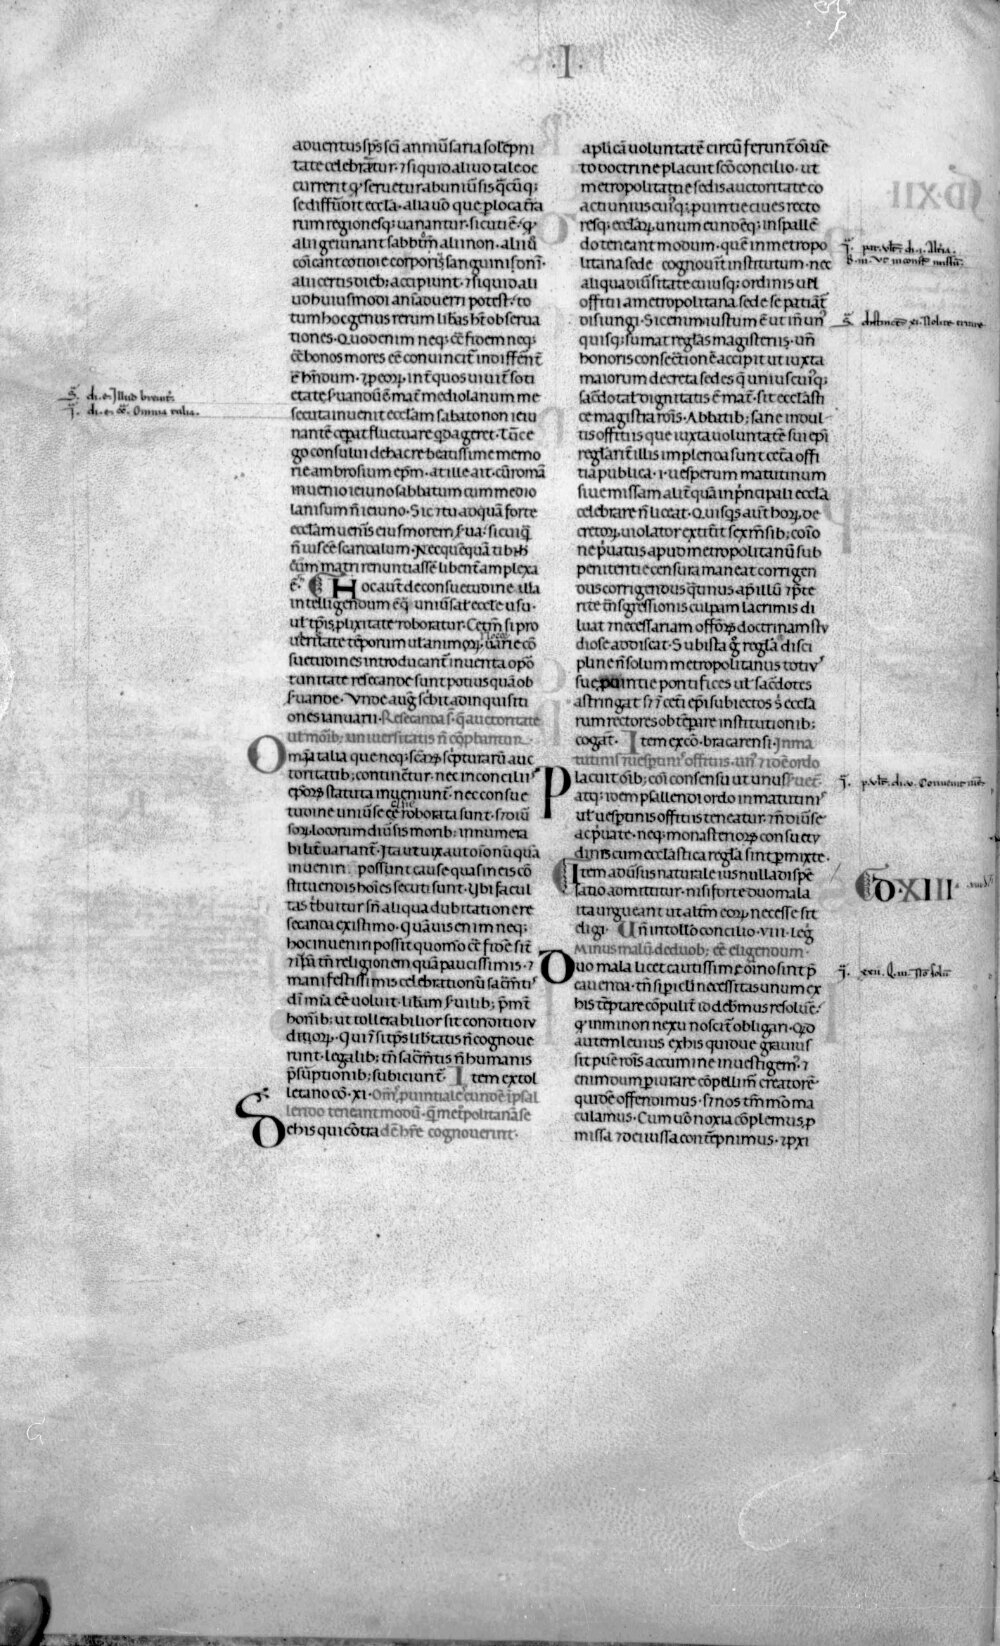 ·I·
aduentus sp̄s sc̄i anniūsaria solēpni
tate celebrant̄ur. ⁊ siquid aliud tale oc
currerit qđ seruetur ab uniūsis q̄cūq;
se diffūdit eccl̄a. Alia uō que ꝑ loca t̄ra
rum regionesq; uariantur. sicuti ē. qđ
alii geiunant sabb̄m alii non. alii ū
coīcant cotidie corporis sanguini s dn̄i.
alii certis dieb; accipiunt. ⁊ siquid ali
ud huiusmodi ansāduerti potest. to
tum hoc genus rerum lib̄as ht̄ obserua
tiones. Quod enim neq; 9̄ fidem neq;
9̄ bonos mores eē conuincit̄ indiffēnt̄
ē hn̄dum. ⁊ ꝑ eoꝝ int̄ quos uiuit̄ soti
etate s̄uandū ē. mat̄ mediolanum me
secuta inuenit eccl̄am sabato non ieiu
nantē. ceꝑat fluctuare qđ ageret. Tūc e
go consului de hac re beatissime memo
rie ambrosium ep̄m. at ille ait. cū romā
uenio ieiuno sabbatum cum medio
lani sum n̄ ieiuno. Sic ⁊ tu ad quā forte
eccl̄am ueneris eius morem s̄ua. si cuiq̄
n̄ uis eē scandalum. nec quēquā tibi. h̄
cum matri renuntiassē libent̄ amplexa
ē. Hoc aut̄ de consuetudine illa
intelligendum ē q̄ uniūsal̄ eccl̄e usu.
ul̄ tp̄is ꝓlixitate roboratur. Cet̄m si pro
ueritate temporum ul̄ animoꝝ uarie cō
suetudines introducant̄ inuenta opō
tunitate resecande sunt potius quā ob
s̄uande. Vnde aug̅ sc̄bit ad inquisiti
ones ianuarii. Resecanda s̄. q̄ auctoritate
ul̄ morib; uniuersitatis n̄ cōprobantur.
Omīa talia que neq; sc̄aꝝ sc̄pturarū auc
toritatib; continētur. nec in conciliis
ep̄oꝝ statuta inueniunt̄. nec consue
tudine uniūse eccl̄ie roborata sunt. s; diū
soꝝ locorum diūsis morib; innumera
bilit̄ uariant̄. Ita ut uix aut oīo nūquā
inueniri possint cause quas in eis cō
stituendis hoīes secuti sunt. Vbi facul
tas tribuitur sn̄ aliqua dubitatione re
secanda existimo. Quāuis enim neq;
hoc inueniri possit quomō 9̄ fidē sit̄
⁊ ip̄ā tn̄ religionem quā paucissimis. ⁊
manifestissimis celebrationū sacm̄tis
di mīa eē uoluit. lib̄am s̄uilib; p̄mt̄
honib; ut tollerabilior sit conditio iu
deoꝝ. Qui ⁊ si tp̄s lib̄tatis n̄ cognoue
runt. legalib; tn̄ sac̄m̄tis n̄ humanis
p̄sūptionib; subiciunt̄. Item ex tol
letano cō. xi. Om̄s ꝓuintiales eundē ī psal
lendo teneant modū. q̄ met̄politana sē
De his qui cōtra deb̄re cognouerint.
aplicā uoluntatē circūferunt̄ ōi ue
to doctrine placuit sc̄o concilio. ut
metropolitane sedis auctoritate co
acti uniuscuiusq; ꝓuintie ciues recto
resq; eccl̄aꝝ. unum eundēq; in psallē
do teneant modum. quē in metropo
litana sede cognouerīt institutum. nec
aliqua diūsitate cuiusq; ordinis uel
offitii a metropolitana sede se patiāt̄
disiungi. Sic enim iustum ē ut in̄ unus
quisq; sumat reglās magisterii. un̄
honoris consecrtionē accipit ut iuxta
maiorum decreta sedes q̄ uniuscuiusq;
sac̄dotal̄ dignitatis ē mat̄. sit ecclēsti
ce magistra rōis. Abbatib; sane indul
tis offitiis que iuxta uoluntatē sui ep̄i
reglārit̄ illis implenda sunt cet̄a offi
tia publica. i. uesperum matutinum
siue missam alit̄ quā in p̄ncipali eccl̄a
celebrare n̄ liceat. Quisqs aut̄ hoꝝ de
cretoꝝ uiolator extitit̄ sex m̄sib; coīo
ne p̄uatus apud metropolitanū sub
penitentie censura maneat corrigen
dus corrigendus q̄tinus ap̄ illū p̄te
rite tn̄sgressionis culpam lacrimis di
luat. ⁊ necessariam offōꝝ doctrinam stu
diose addiscat. Sub ista ḡ regl̄a disci
pline n̄ solum metropolitanus totius
sue ꝓuintie pontifices ul̄ sac̄dotes
astringat s; ⁊ cet̄i ep̄i subiectos s; eccl̄a
rum rectores obtēpare institutionib;
cogāt. Item ex cō. bracarensi. In ma
tutinis ⁊ uesptinis offitiis. unus ⁊ idē ordo
Placuit ōib; cōi consensu ut unus s̄uet̄.
atq; idem psallendi ordo in matutinis
ul̄ uesptinis offitiis teneatur. n̄ diūse
ac p̄uate. neq; monasterioꝝ consuetu
dinis cum eccl̄astica regla sint ꝑmixte.
Item aduersus naturale ius nulla dispē
satio admittitur. nisi forte duo mala
ita urgueant ut alt̄m eoꝝ necesse sit
eligi. Un̄ in tollō concilio. viii. leḡ
Minus malū de duob; eē eligendum.
Duo mala licet cautissime oīno sint p̄
cauenda. tn̄ si piclī necessitas unum ex
his tēptare cōpulit̄ id debemus resoluē.
qđ minori nexu noscit̄ obligari. Qđ
autem leuius ex his quidue grauius
sit pure rōis accumine inuestigem. ⁊
enim dum piurare cōpellim̄ creatorē
quidē offendimus. s; nos tn̄ mōma
culamus. Cum uō noxia cōplemus. p̄
missa ⁊ dei iussa contēpnimus. ⁊ pxi
S̄. di. e. Illud breuit̄.
J̄. di. e. c̄. Omnia talia.
J̄. par. ult̄. di. i. Altaria.
S̄. distinct̄ xi. Nolite errare
J̄. p. ult̄. di. v. Conuenit
D·XIII·
J̄. xxii. q. iii. No solū